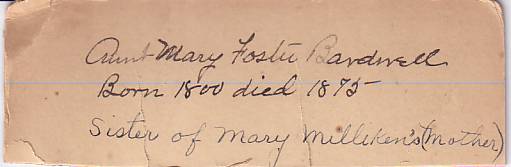 Aunt Mary Foster Bardwell
Born 1800 died 1875
Sister of Mary Milliken's (Mother)